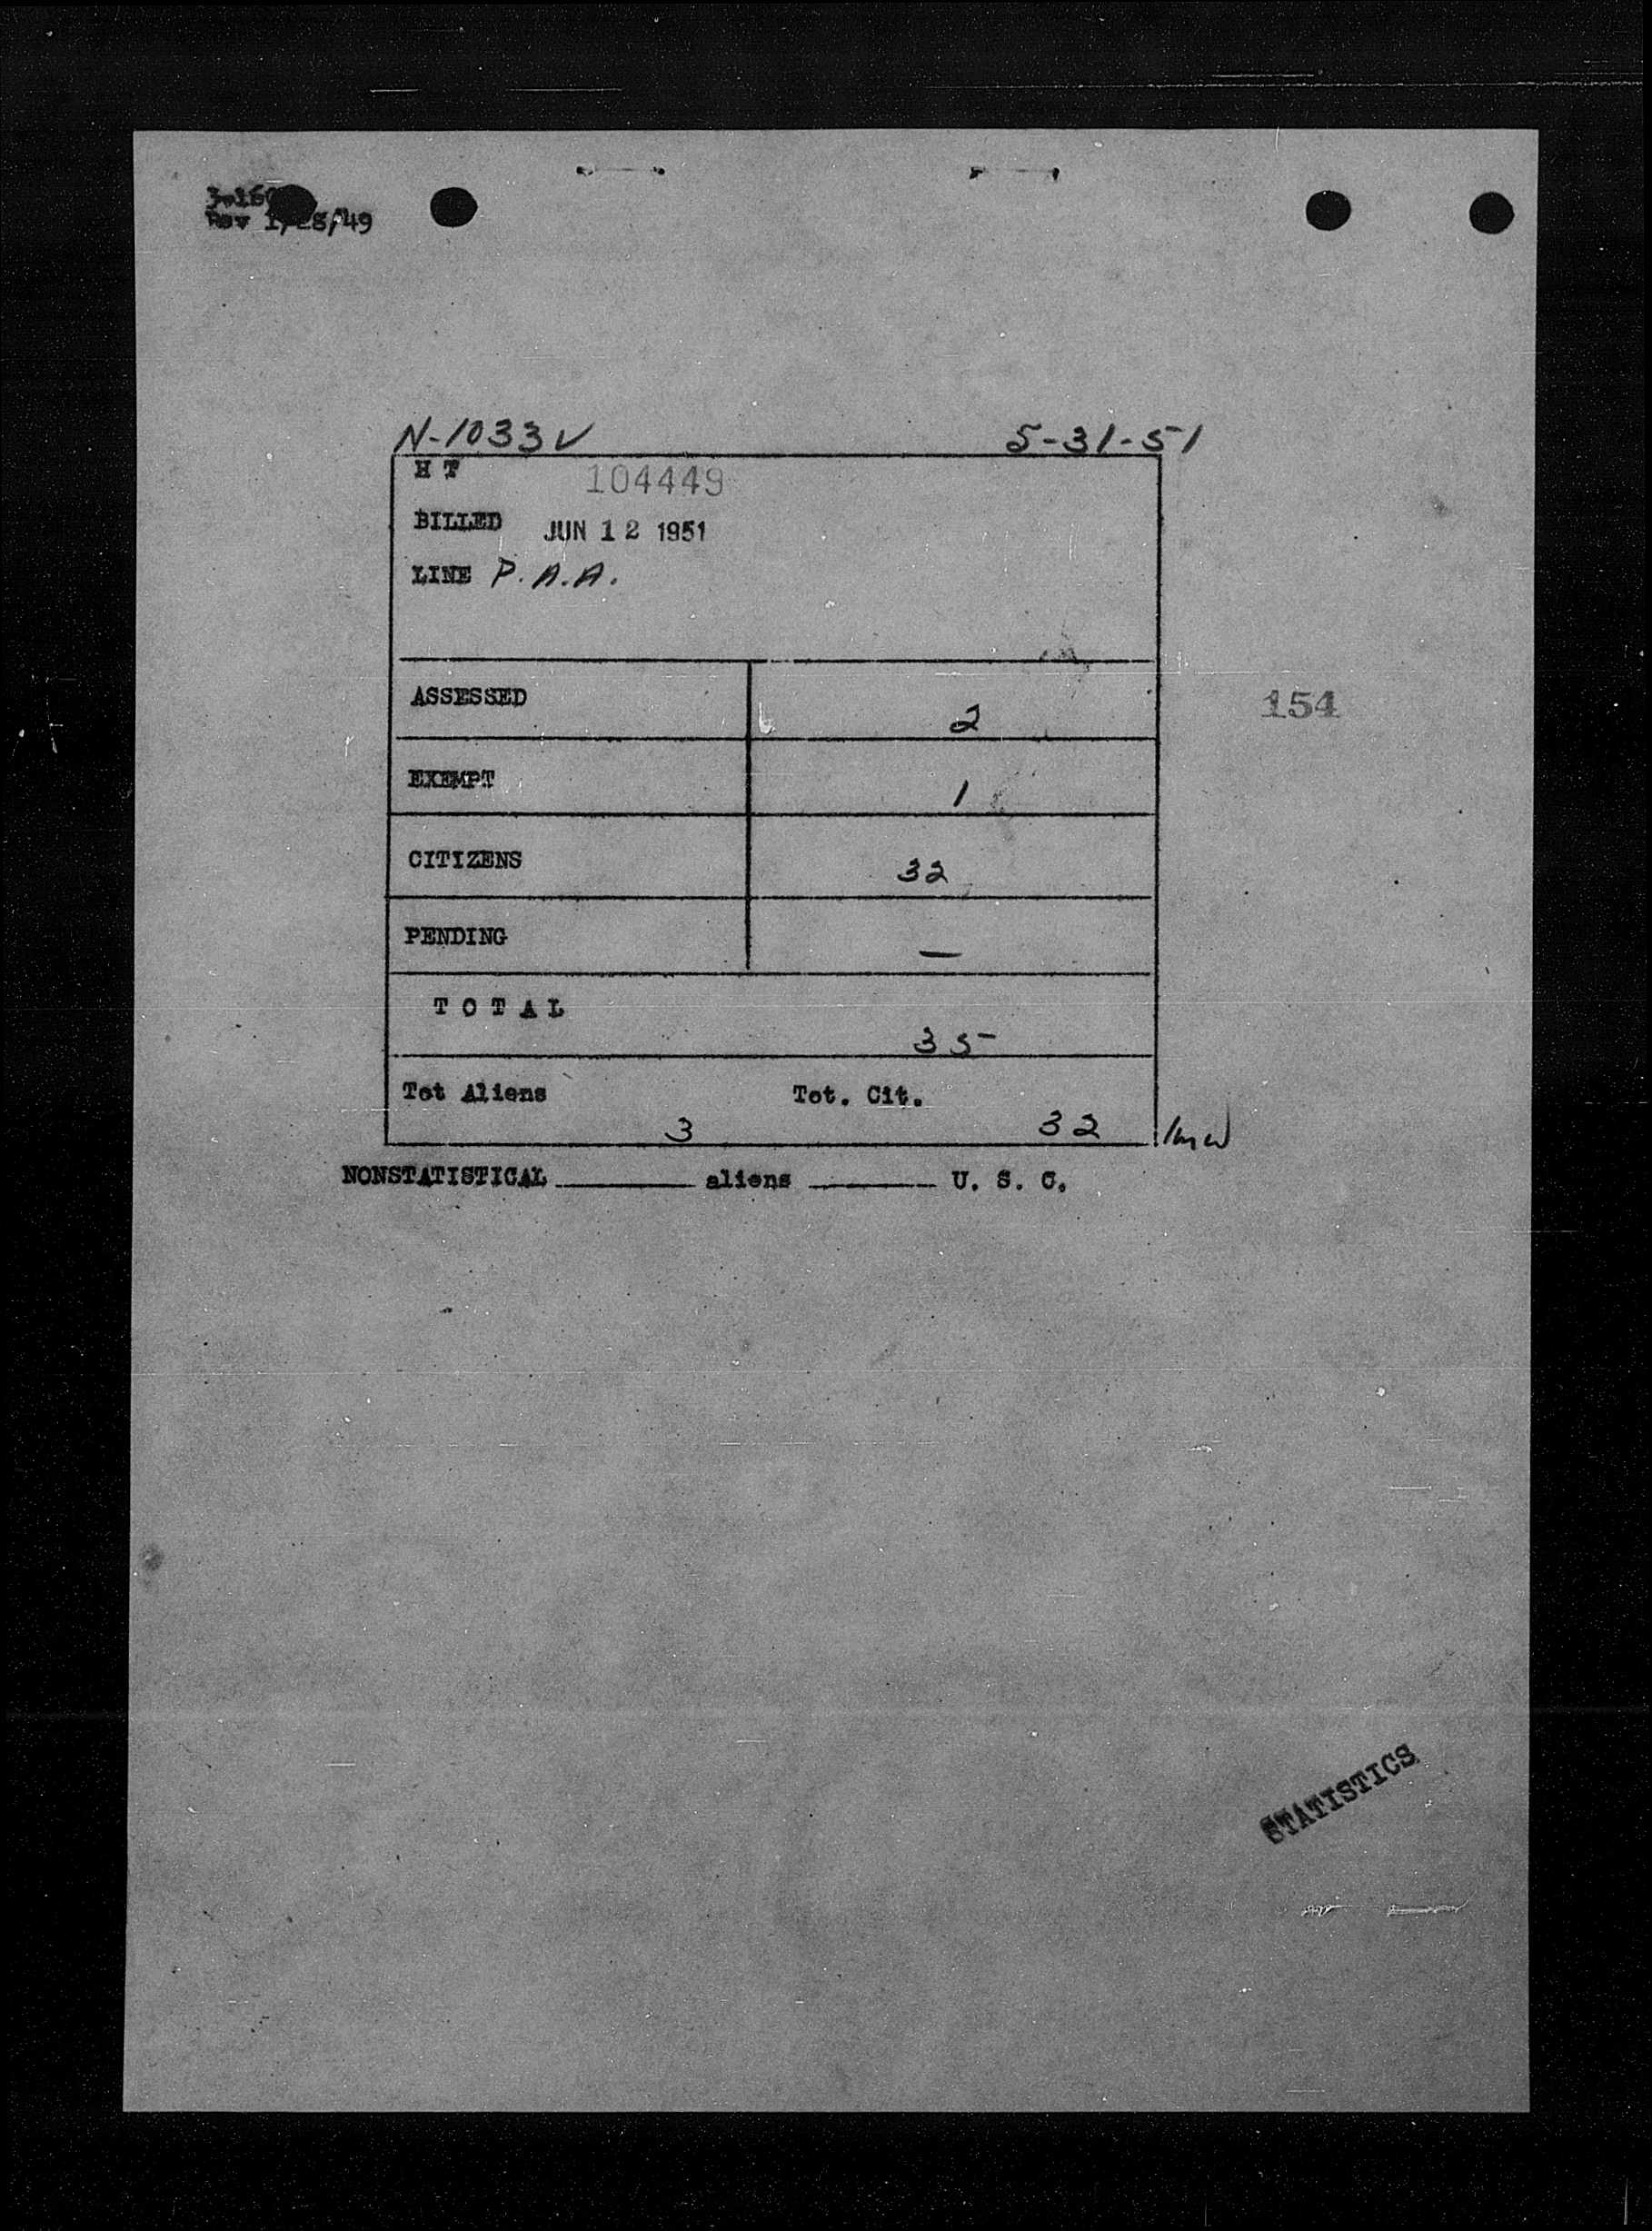 Rev 1/28/49
N-1033V 5-31-51
H T 104449
BILLED JUN 12 1951
LINE P.A.A.
ASSESSED 2
154
EXEMPT 1
CITIZENS 32
PENDING —
TOTAL 35
Tot Aliens 3 Tot. Cit. 32
NONSTATISTICAL ______ aliens ______ U. S. C.
STATISTICS